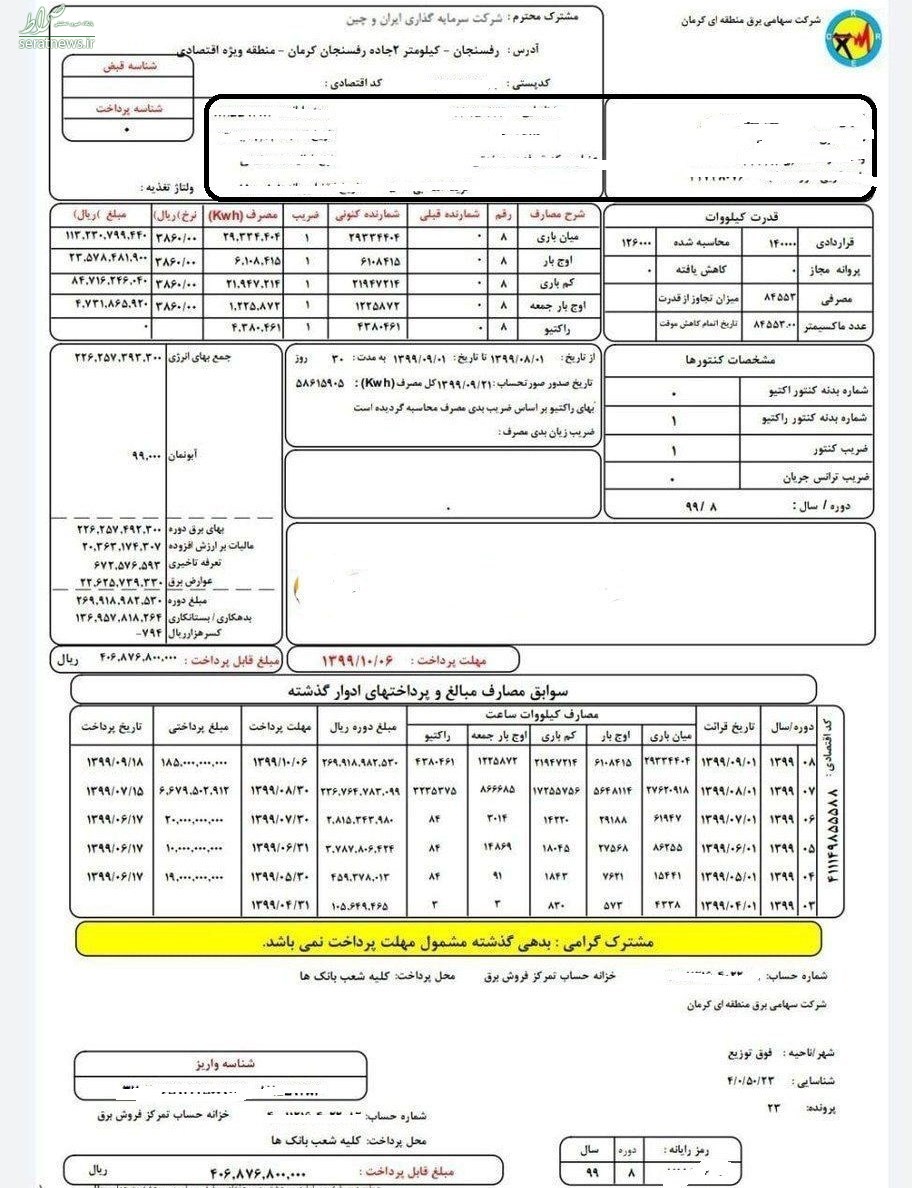 صراط
seratnews.ir
شرکت سهامی برق منطقه ای کرمان
مشترک محترم : شرکت سرمایه گذاری ایران و چین
آدرس : رفسنجان - کیلومتر ۲جاده رفسنجان کرمان - منطقه ویژه اقتصادی
کدپستی : کد اقتصادی :
شناسه قبض
شناسه پرداخت
۰
ولتاژ تغذیه :
قدرت کیلووات
قراردادی ۱۴۰۰۰۰ محاسبه شده ۱۲۶۰۰۰
پروانه مجاز ۰ کاهش یافته ۰
مصرفی ۸۴۵۵۳ میزان تجاوز از قدرت
عدد ماکسیمتر ۸۴۵۵۳.۰۰ تاریخ اتمام کاهش موقت
شرح مصارف رقم شمارنده قبلی شمارنده کنونی ضریب مصرف (Kwh) نرخ(ریال) مبلغ (ریال)
میان باری ۸ ۰ ۲۹۳۳۴۴۰۴ ۱ ۲۹,۳۳۴,۴۰۴ ۳۸۶۰/۰۰ ۱۱۳,۲۳۰,۷۹۹,۴۴۰
اوج بار ۸ ۰ ۶۱۰۸۴۱۵ ۱ ۶,۱۰۸,۴۱۵ ۳۸۶۰/۰۰ ۲۳,۵۷۸,۴۸۱,۹۰۰
کم باری ۸ ۰ ۲۱۹۴۷۲۱۴ ۱ ۲۱,۹۴۷,۲۱۴ ۳۸۶۰/۰۰ ۸۴,۷۱۶,۲۴۶,۰۴۰
اوج بار جمعه ۸ ۰ ۱۲۲۵۸۷۲ ۱ ۱,۲۲۵,۸۷۲ ۳۸۶۰/۰۰ ۴,۷۳۱,۸۶۵,۹۲۰
راکتیو ۸ ۰ ۴۳۸۰۴۶۱ ۱ ۴,۳۸۰,۴۶۱ ۰
مشخصات کنتورها
شماره بدنه کنتور اکتیو ۰
شماره بدنه کنتور راکتیو ۱
ضریب کنتور ۱
ضریب ترانس جریان ۰
دوره / سال : ۸ /۹۹
از تاریخ : ۱۳۹۹/۰۸/۰۱ تا تاریخ : ۱۳۹۹/۰۹/۰۱ به مدت: ۳۰ روز
تاریخ صدور صورتحساب :۱۳۹۹/۰۹/۲۱کل مصرف (Kwh) : ۵۸۶۱۵۹۰۵
بهای راکتیو بر اساس ضریب بدی مصرف محاسبه گردیده است
ضریب زیان بدی مصرف :
۰
جمع بهای انرژی ۲۲۶,۲۵۷,۳۹۳,۳۰۰
آبونمان ۹۹,۰۰۰
بهای برق دوره ۲۲۶,۲۵۷,۴۹۲,۳۰۰
مالیات بر ارزش افزوده ۲۰,۳۶۳,۱۷۴,۳۰۷
تعرفه تاخیری ۶۷۲,۵۷۶,۵۹۳
عوارض برق ۲۲,۶۲۵,۷۳۹,۳۳۰
مبلغ دوره ۲۶۹,۹۱۸,۹۸۲,۵۳۰
بدهکاری / بستانکاری ۱۳۶,۹۵۷,۸۱۸,۲۶۴
کسرهزارریال ۷۹۴-
مبلغ قابل پرداخت : ۴۰۶,۸۷۶,۸۰۰,۰۰۰ ریال
مهلت پرداخت : ۱۳۹۹/۱۰/۰۶
سوابق مصارف مبالغ و پرداختهای ادوار گذشته
کد اقتصادی : ۴۱۱۱۴۹۸۵۵۵۸۸
دوره/سال تاریخ قرائت مصارف کیلووات ساعت مبلغ دوره ریال مهلت پرداخت مبلغ پرداختی تاریخ پرداخت
میان باری اوج بار کم باری اوج بار جمعه راکتیو
۰۸ ۱۳۹۹ ۱۳۹۹/۰۹/۰۱ ۲۹۳۳۴۴۰۴ ۶۱۰۸۴۱۵ ۲۱۹۴۷۲۱۴ ۱۲۲۵۸۷۲ ۴۳۸۰۴۶۱ ۲۶۹,۹۱۸,۹۸۲,۵۳۰ ۱۳۹۹/۱۰/۰۶ ۱۸۵,۰۰۰,۰۰۰,۰۰۰ ۱۳۹۹/۰۹/۱۸
۰۷ ۱۳۹۹ ۱۳۹۹/۰۸/۰۱ ۲۷۶۲۰۹۱۸ ۵۶۴۸۱۱۴ ۱۷۲۵۵۷۵۶ ۸۶۶۶۸۵ ۳۲۳۵۳۷۵ ۲۳۶,۷۶۴,۷۸۳,۰۹۹ ۱۳۹۹/۰۸/۳۰ ۶,۶۷۹,۵۰۲,۹۱۲ ۱۳۹۹/۰۷/۱۵
۰۶ ۱۳۹۹ ۱۳۹۹/۰۷/۰۱ ۶۱۹۴۷ ۲۹۱۸۸ ۱۴۲۲۰ ۳۰۱۴ ۸۴ ۲,۸۱۵,۳۴۳,۹۸۰ ۱۳۹۹/۰۷/۳۰ ۲۰,۰۰۰,۰۰۰,۰۰۰ ۱۳۹۹/۰۶/۱۷
۰۵ ۱۳۹۹ ۱۳۹۹/۰۶/۰۱ ۸۶۲۵۵ ۲۷۵۶۸ ۱۸۰۴۵ ۱۴۸۶۹ ۸۴ ۳,۷۸۷,۸۰۶,۴۲۴ ۱۳۹۹/۰۶/۳۱ ۱۰,۰۰۰,۰۰۰,۰۰۰ ۱۳۹۹/۰۶/۱۷
۰۴ ۱۳۹۹ ۱۳۹۹/۰۵/۰۱ ۱۵۴۴۱ ۷۶۲۱ ۱۸۴۳ ۹۱ ۸۴ ۴۵۹,۳۷۸,۰۱۳ ۱۳۹۹/۰۵/۳۰ ۱۹,۰۰۰,۰۰۰,۰۰۰ ۱۳۹۹/۰۶/۱۷
۰۳ ۱۳۹۹ ۱۳۹۹/۰۴/۰۱ ۴۳۳۸ ۵۷۳ ۸۳۰ ۳ ۳ ۱۰۵,۶۴۹,۴۶۵ ۱۳۹۹/۰۴/۳۱
مشترک گرامی : بدهی گذشته مشمول مهلت پرداخت نمی باشد.
شماره حساب: خزانه حساب تمرکز فروش برق محل پرداخت: کلیه شعب بانک ها
شرکت سهامی برق منطقه ای کرمان
شهر/ناحیه : فوق توزیع
شناسایی : ۴/۰/۵۰/۲۳
پرونده: ۲۳
شناسه واریز
شماره حساب: خزانه حساب تمرکز فروش برق
محل پرداخت: کلیه شعب بانک ها
رمز رایانه : دوره سال
۸ ۹۹
مبلغ قابل پرداخت : ۴۰۶,۸۷۶,۸۰۰,۰۰۰ ریال